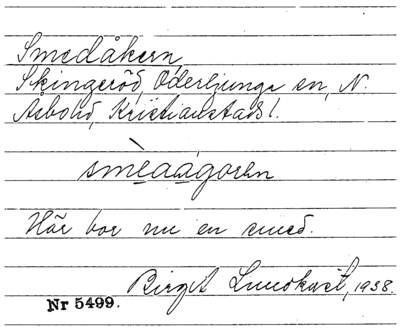 Smedåkern
Skingeröd, Oderljunga sn, N.
Åsbohd, Kristianstads l.
smèaągoren
Här bor nu en smed.
Birgit Lundkvist, 1938.
Nr 5499.